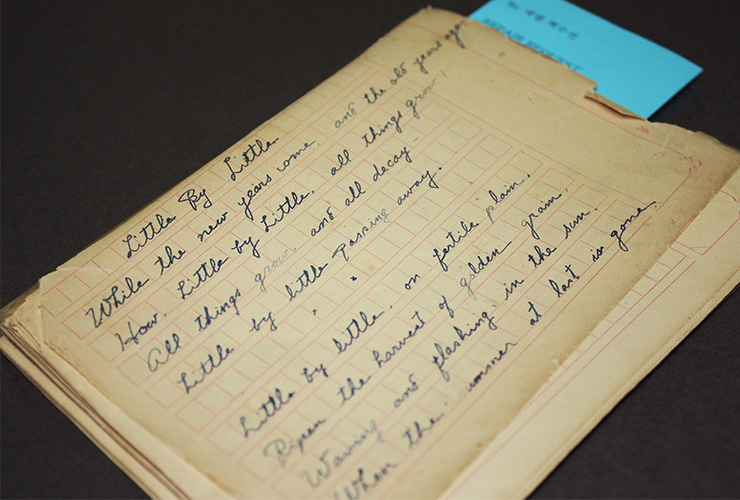 REPAIR REQUEST
Little By Little
While the new years come, and the old years ago
How, Little by Little, all things grow!
All things grow, and all decay-
Little by little passing away.
Little by little, on fertile plain,
Ripen the harvest of golden grain,
Waving and flashing in the sun.
When the summer at last is gone.